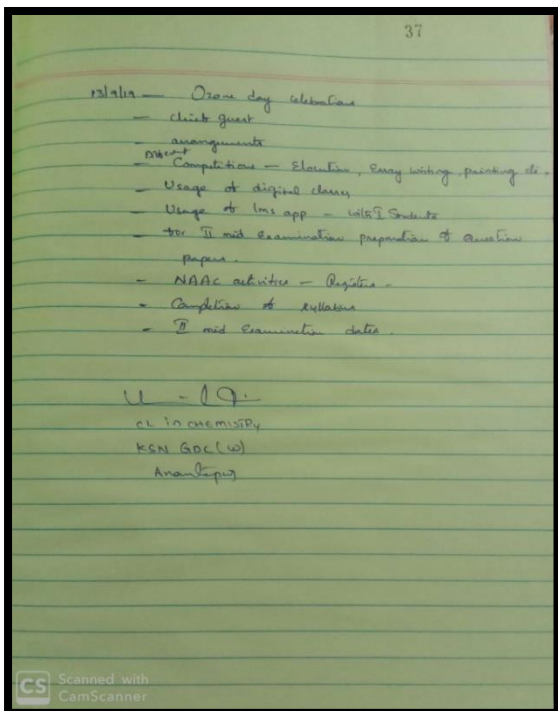 37
13/9/19 — Ozone day celebrations
— chief guest
— arrangements
Different
— Competitions — Elocution, Essay writing, painting etc.
— Usage of digital classes
— Usage of lms app — with I Students
— for II mid examination preparation of question
papers.
— NAAC activities — Registers -
— Completion of syllabus
— II mid Examination dates.
CL in CHEMISTRY
KSN GDC (W)
Anantapur
CS Scanned with
CamScanner